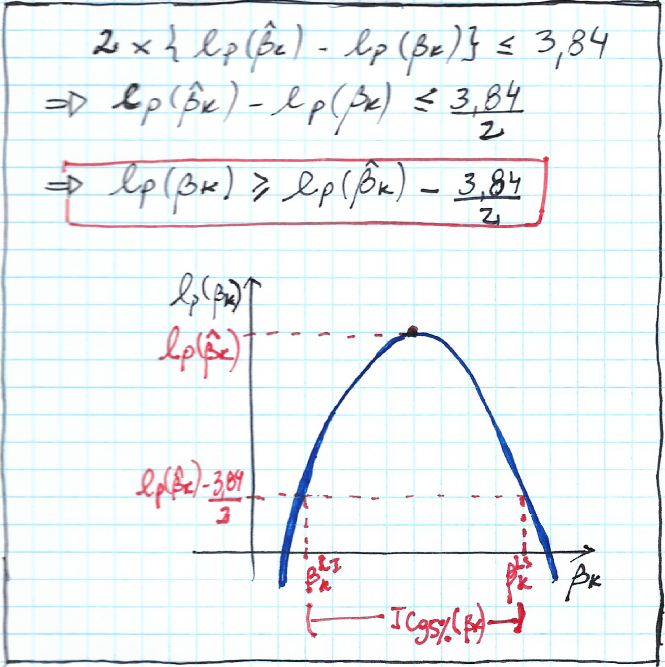 2 × { lp(β̂κ) - lp(βκ)} ≤ 3,84
⇒ lp(β̂κ) - lp(βκ) ≤ 3,84/2
⇒ lp(βκ) ≥ lp(β̂κ) - 3,84/2
lp(βκ)
lp(β̂κ)
lp(β̂κ) - 3,84/2
βκ^LI βκ^LS βκ
IC95%(βκ)